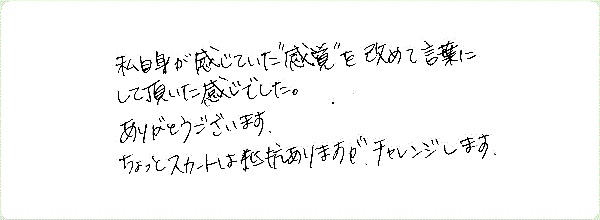 私自身が感じていた"感覚"を改めて言葉に
して頂いた感じでした。
ありがとうございます.
ちょっとスカートは抵抗ありますが、チャレンジします.